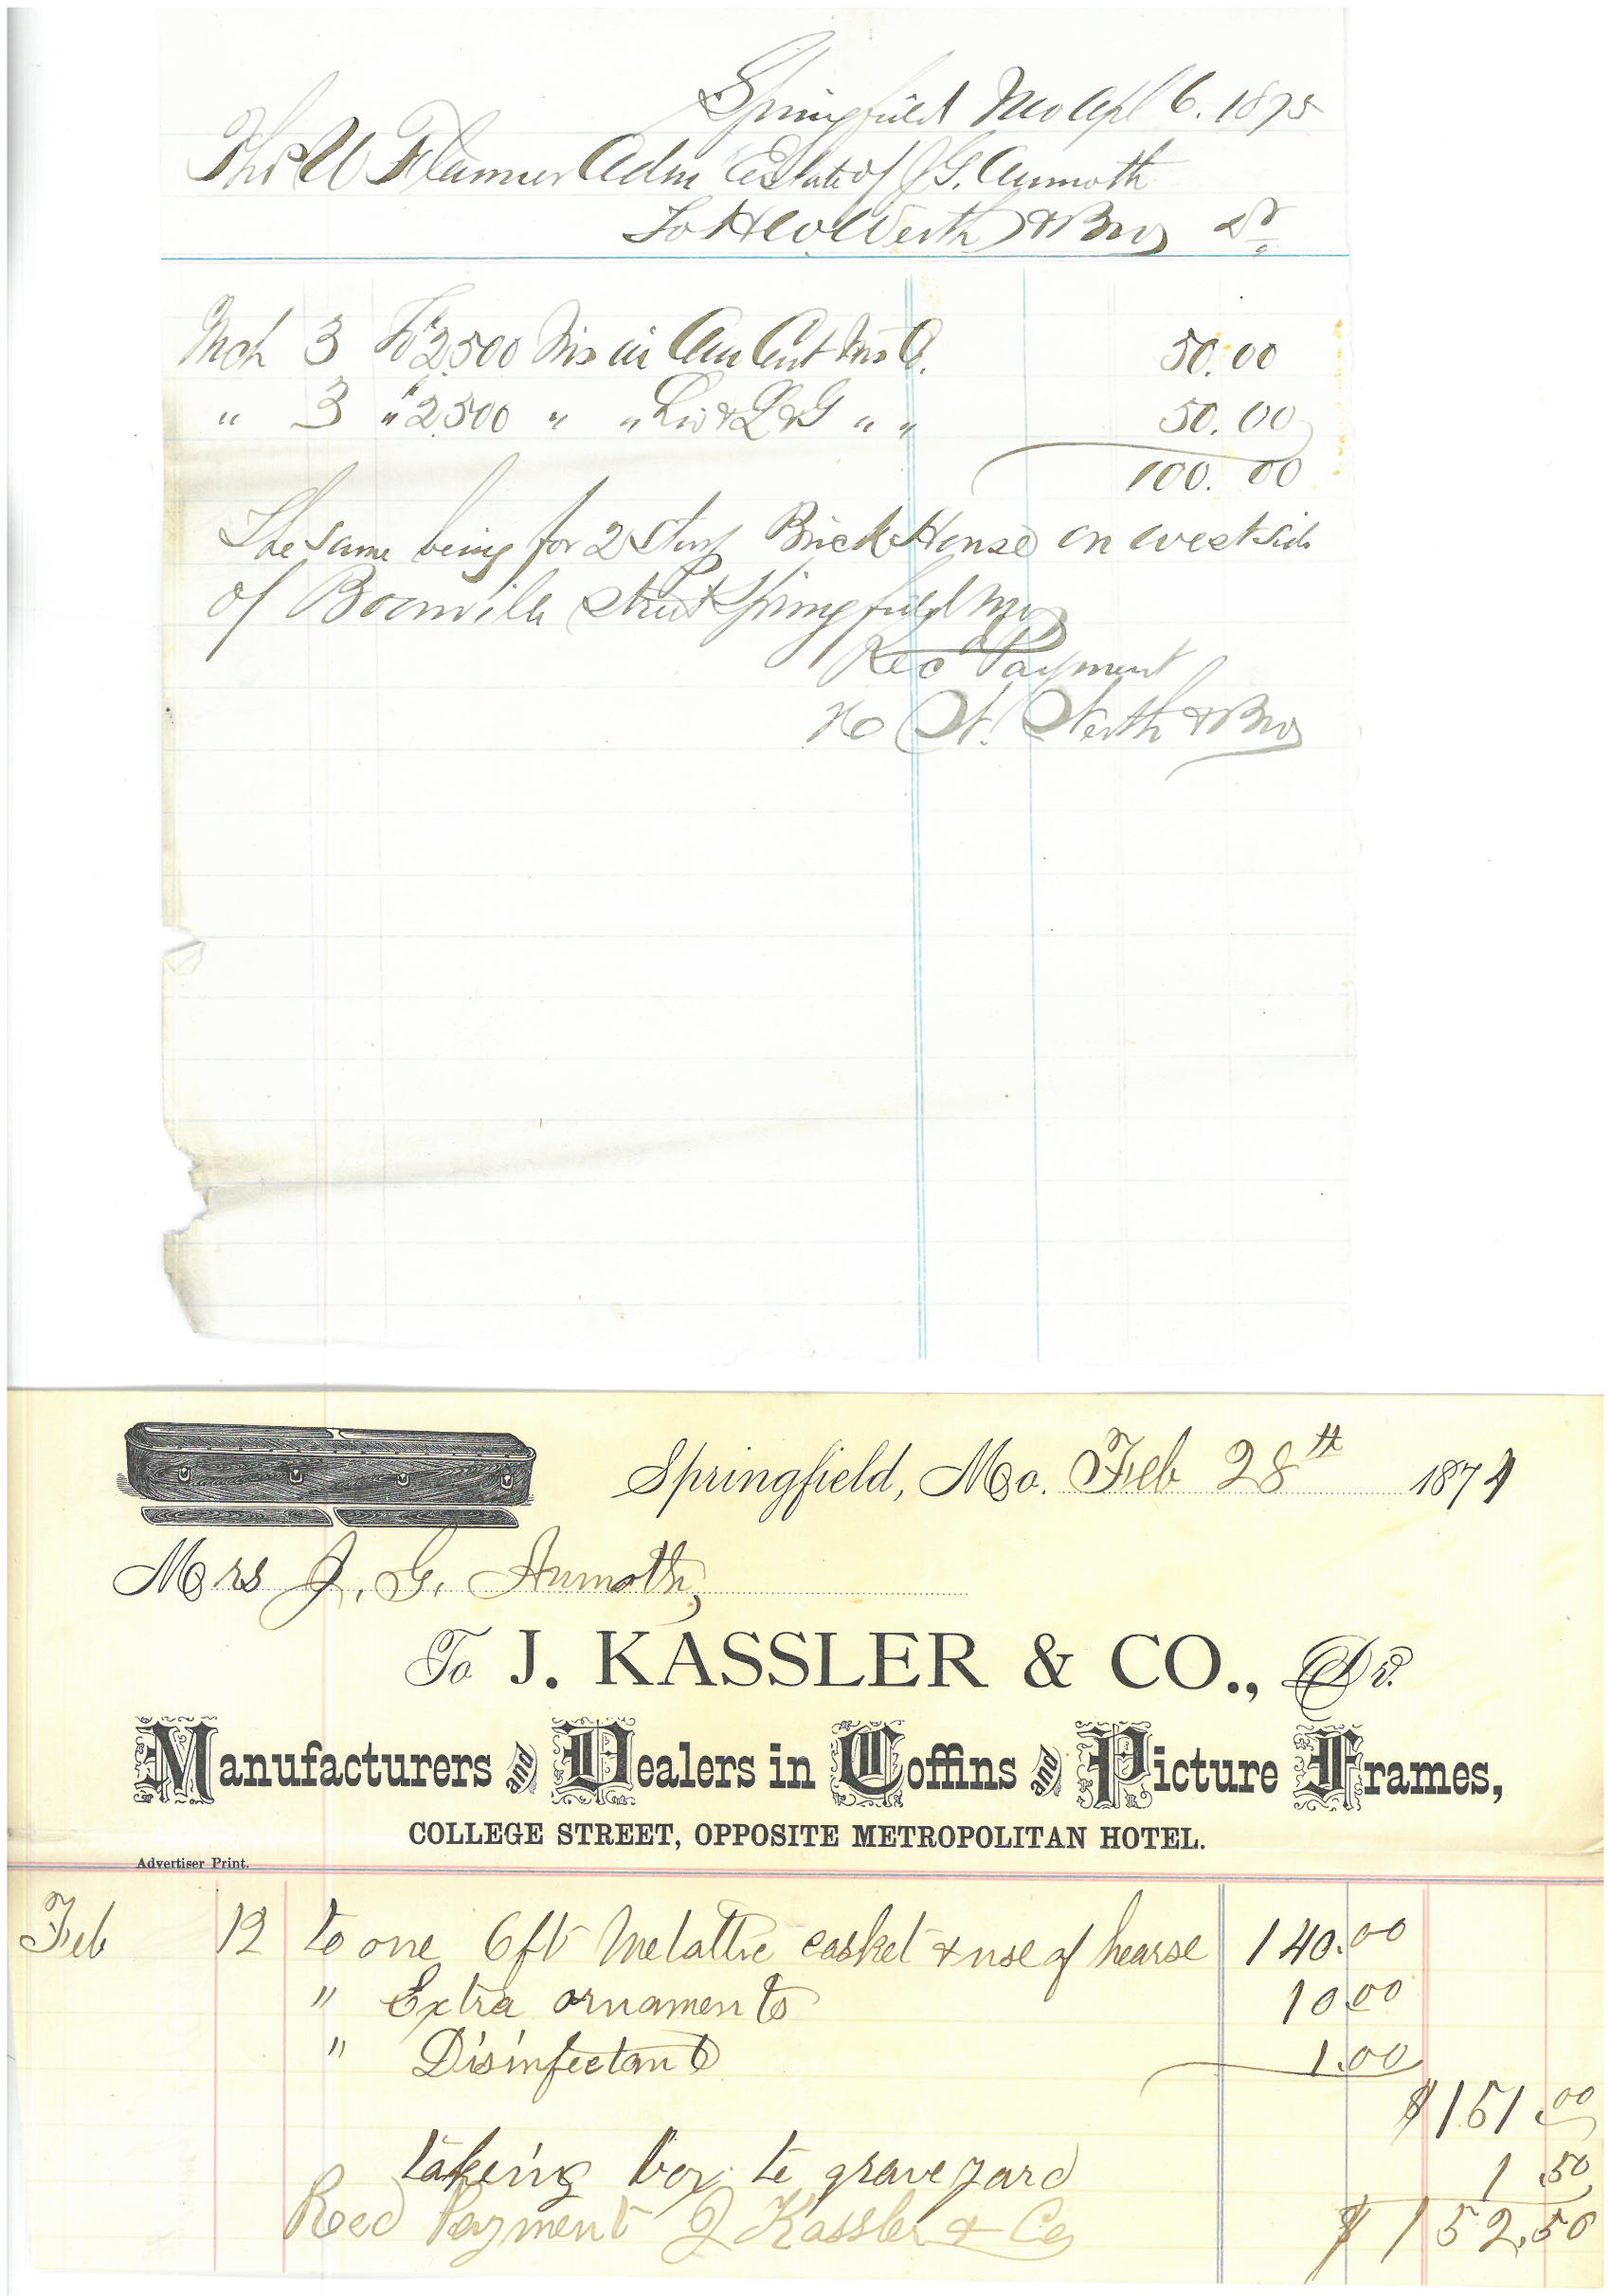 Springfield Mo Apl 6. 1875
Thos U Flanner Adm Estate of J G. Annoth
To H C Werth & Bro Dr
Mch 3 To 2500 Ins in Am Cent Ins C. 50.00
" 3 " 2500 " " Liv & L & G " " 50.00
100.00
The same being for 2 Story Brick House on west side
of Boonville Street Springfield Mo
Recd Payment
H C Werth & Bro
Springfield, Mo. Feb 28th 1874
Mrs J. G. Anmoth,
To J. KASSLER & CO., Dr.
Manufacturers and Dealers in Coffins and Picture Frames,
COLLEGE STREET, OPPOSITE METROPOLITAN HOTEL.
Advertiser Print.
Feb 12 to one 6ft Metallic casket & use of hearse 140.00
" Extra ornaments 10.00
" Disinfectant 1.00
$151.00
taking box to grave yard 1.50
Recd Payment J Kassler & Co $152.50